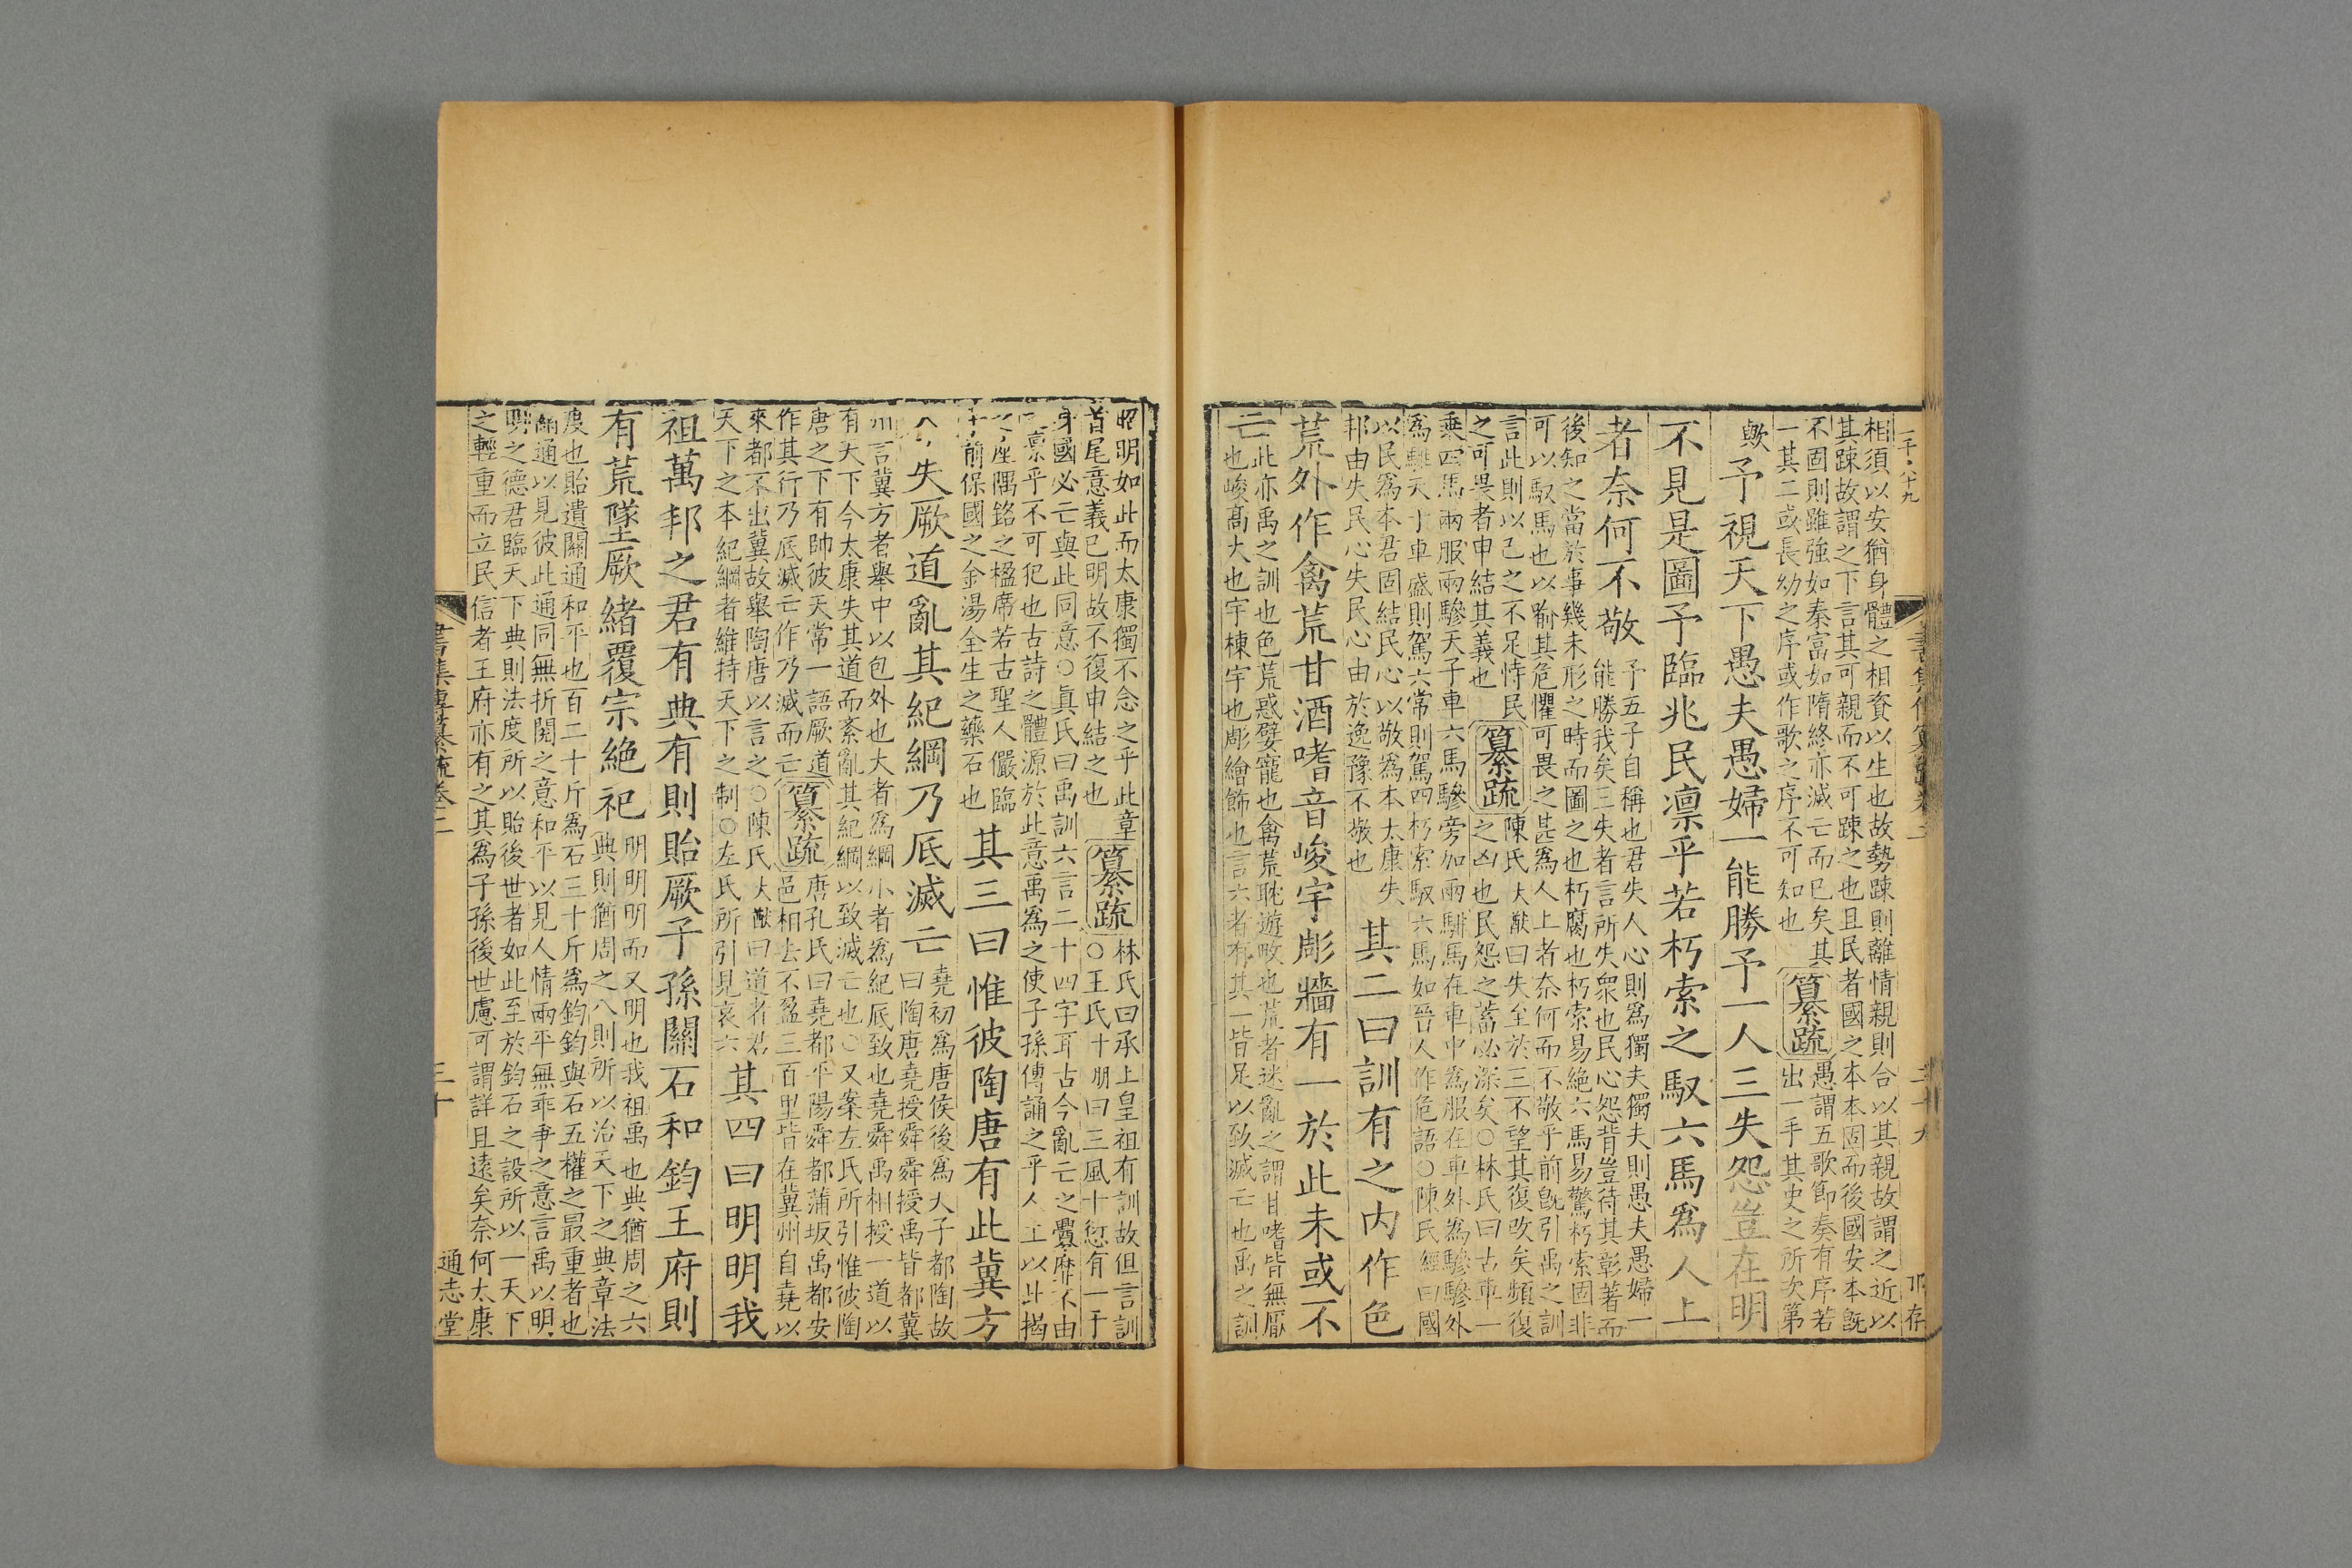 二千·八十九
相須以安猶身體之相資以生也故勢踈則離情親則合以其親故謂之近以
其踈故謂之下言其可親而不可踈之也且民者國之本本固而後國安本旣
不固則雖強如秦富如隋終亦滅亡而已矣其
一其二或長幼之序或作歌之序不可知也
纂疏
愚謂五歌節奏有序若
出一手其史之所次第
歟
予視天下愚夫愚婦一能勝予一人三失怨豈在明
不見是圖予臨兆民凛乎若朽索之馭六馬爲人上
者奈何不敬
予五子自稱也君失人心則爲獨夫獨夫則愚夫愚婦一
能勝我矣三失者言所失衆也民心怨背豈待其彰著而
後知之當於事幾未形之時而圖之也朽腐也朽索易絶六馬易驚朽索固非
可以馭馬也以喻其危懼可畏之甚爲人上者奈何而不敬乎前旣引禹之訓
言此則以己之不足恃民
之可畏者申結其義也
纂疏
陳氏大猷曰失至於三不望其復改矣頻復
之凶也民怨之蓄必深矣○林氏曰古車一
乘四馬兩服兩驂天子車六馬驂旁加兩騑馬在車中爲服在車外爲驂驂外
爲騑天子車盛則駕六常則駕四朽索馭六馬如晉人作危語○陳氏經曰國
以民爲本君固結民心以敬爲本太康失
邦由失民心失民心由於逸豫不敬也
其二曰訓有之内作色
荒外作禽荒甘酒嗜音峻宇彫牆有一於此未或不
亡
此亦禹之訓也色荒惑嬖寵也禽荒耽遊畋也荒者迷亂之謂甘嗜皆無厭
也峻髙大也宇棟宇也彫繪飾也言六者有其一皆足以致滅亡也禹之訓
書集傳纂疏卷二
二十九
昭明如此而太康獨不念之乎此章
首尾意義已明故不復申結之也
纂疏
林氏曰承上皇祖有訓故但言訓
○王氏十朋曰三風十愆有一于
身國必亡與此同意○眞氏曰禹訓六言二十四字耳古今亂亡之釁靡不由
之凛乎不可犯也古詩之體源於此意禹爲之使子孫傳誦之乎人主以此揭
之座隅銘之楹席若古聖人儼臨
其前保國之金湯全生之藥石也
其三曰惟彼陶唐有此冀方
今失厥道亂其紀綱乃厎滅亡
堯初爲唐侯後爲天子都陶故
曰陶唐堯授舜舜授禹皆都冀
州言冀方者舉中以包外也大者爲綱小者爲紀厎致也堯舜禹相授一道以
有天下今太康失其道而紊亂其紀綱以致滅亡也○又案左氏所引惟彼陶
唐之下有帥彼天常一語厥道
作其行乃厎滅亡作乃滅而亡
纂疏
唐孔氏曰堯都平陽舜都蒲坂禹都安
邑相去不盈三百里皆在冀州自堯以
來都不出冀故舉陶唐以言之○陳氏大猷曰道者君
天下之本紀綱者維持天下之制○左氏所引見哀六
其四曰明明我
祖萬邦之君有典有則貽厥子孫關石和鈞王府則
有荒墜厥緒覆宗絶祀
明明明而又明也我祖禹也典猶周之六
典則猶周之八則所以治天下之典章法
度也貽遺關通和平也百二十斤爲石三十斤爲鈞鈞與石五權之最重者也
關通以見彼此通同無折閱之意和平以見人情兩平無乖爭之意言禹以明
明之德君臨天下典則法度所以貽後世者如此至於鈞石之設所以一天下
之輕重而立民信者王府亦有之其爲子孫後世慮可謂詳且遠矣奈何太康
書集傳纂疏卷二
三十
通志堂